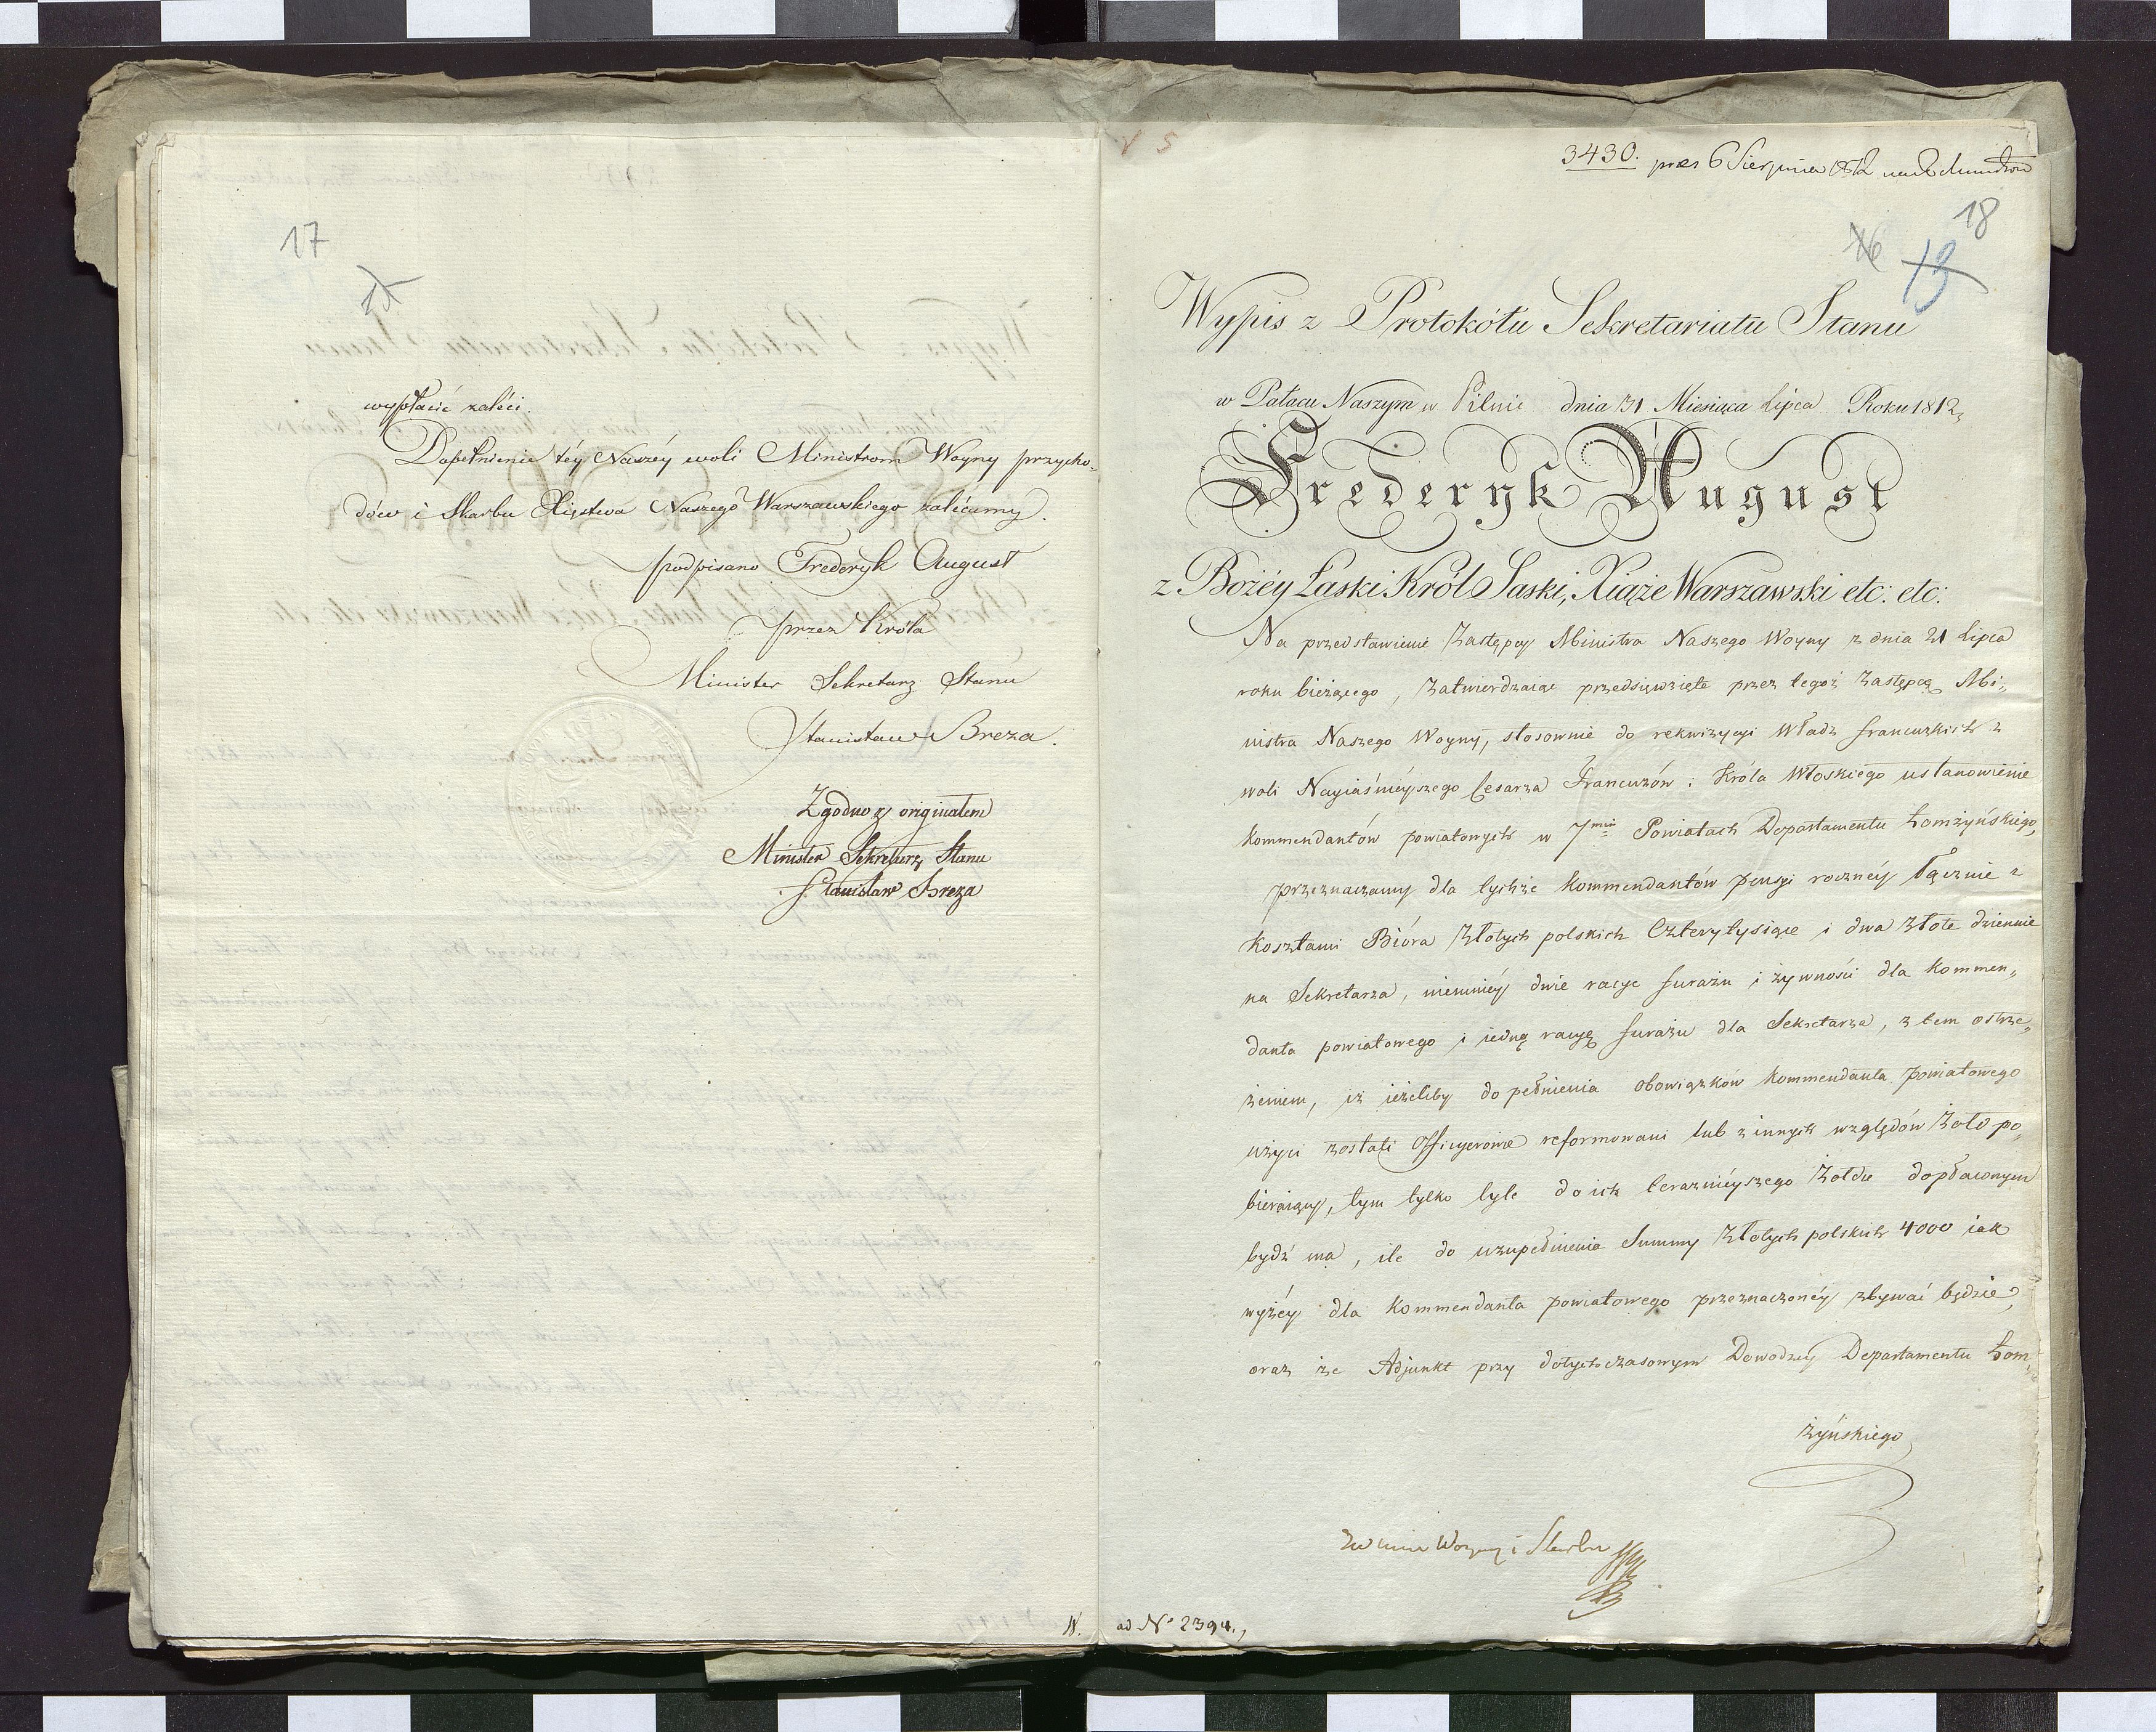 17
wypłacić zaléci.
Dopełnienie téy Naszéy woli Ministrom Woyny przycho„
dów i Skarbu Xięstwa Naszego Warszawskiego zalécamy.
podpisano Frederyk August
przez Króla
Minister Sekretarz Stanu
Stanisław Breza.
Zgodno z originałem
Minister Sekretarz Stanu
Stanisław Breza
V 5
3430. prez 6 Sierpnia 1812
18
16
13
Wypis z Protokółu Sekretariatu Stanu
w Pałacu Naszym w Pilnic dnia 31 Miesiąca Lipca Roku 1812
Frederyk August
z Bożéy Łaski Król Saski, Xiąże Warszawski etc: etc:
Na przedstawienie Zastępcy Ministra Naszego Woyny z dnia 21 Lipca
roku bieżącego, Zatwierdzaiąc przedsięwzięte przez tegoż Zastępcę Mi„
nistra Naszego Woyny, stosownie do rekwizycyi Władz francuzkich z
woli Nayiaśnieyszego Cesarza Francuzów i Króla Włoskiego ustanowienie
kommendantów powiatowych w 7miu Powiatach Departamentu Łomżyńskiego,
przeznaczamy dla tychże Kommendantów pensyi rocznéy łącznie z
kosztami Bióra Złotych polskich Czterytysiące i dwa Złote dziennie
na Sekretarza, niemniéy dwie racye furażu i żywności dla Kommen„
danta powiatowego i iedną racyę furażu dla Sekretarza, z tem ostrze„
żeniem, iż ieżeliby do pełnienia obowiązków Kommendanta powiatowego
użyci zostali Officyerowie reformowani lub z innych względów Żołd po„
bieraiący, tym tylko tyle do ich teraznieyszego Żołdu dopłaconym
bydź ma, ile do uzupełnienia Summy Złotych polskich 4000 iak
wyżéy dla Kommendanta powiatowego przeznaczonéy zbywać będzie,
oraz że Adjunkt przy dotychczasowym Dowodzcy Departamentu Łom„
żyńskiego
Woyny i Skarbu
ad No 2394.,